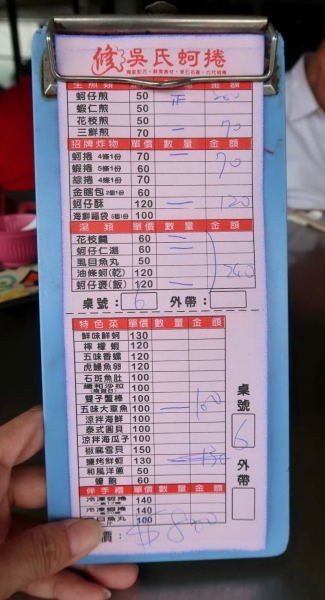 修 吳氏蚵捲
生煎類 單價 數量 金額
蚵仔煎 50 正 250
蝦仁煎 50
花枝煎 50
三鮮煎 70 一 70
招牌炸物 單價 數量 金額
蚵捲 4條1份 70 一 70
蝦捲 5條1份 60
綜捲 4條1份 70
金瞎包 2個1份 60
蚵仔酥 120 一 120
海鮮福袋 6個1份 100
湯類 單價 數量 金額
花枝羹 60
蚵仔仁湯 60
風目魚丸 50
油條蚵(乾) 120
蚵仔湯(飯) 120 240
桌號: 6 外帶:
特色菜 單價 數量 金額
鮮味鮮蚵 130
檸檬蝦 120
五味香螺 120
虎鰻魚卵 120
石斑魚肚 100
纖和沙拉 100
雙子蟹棒 100
五味大章魚 100 一 100
涼拌海鮮 100
泰式圓貝 100
涼拌海瓜子 100
椒麻雪貝 150
鹽烤鮮蚵 130 130
和風洋蔥 50
鰻鮑 60
桌號 6 外帶
伴手禮 單價 數量 金額
冷凍蝦捲 140
冷凍蚵捲 140
虱目魚丸 100
價: $